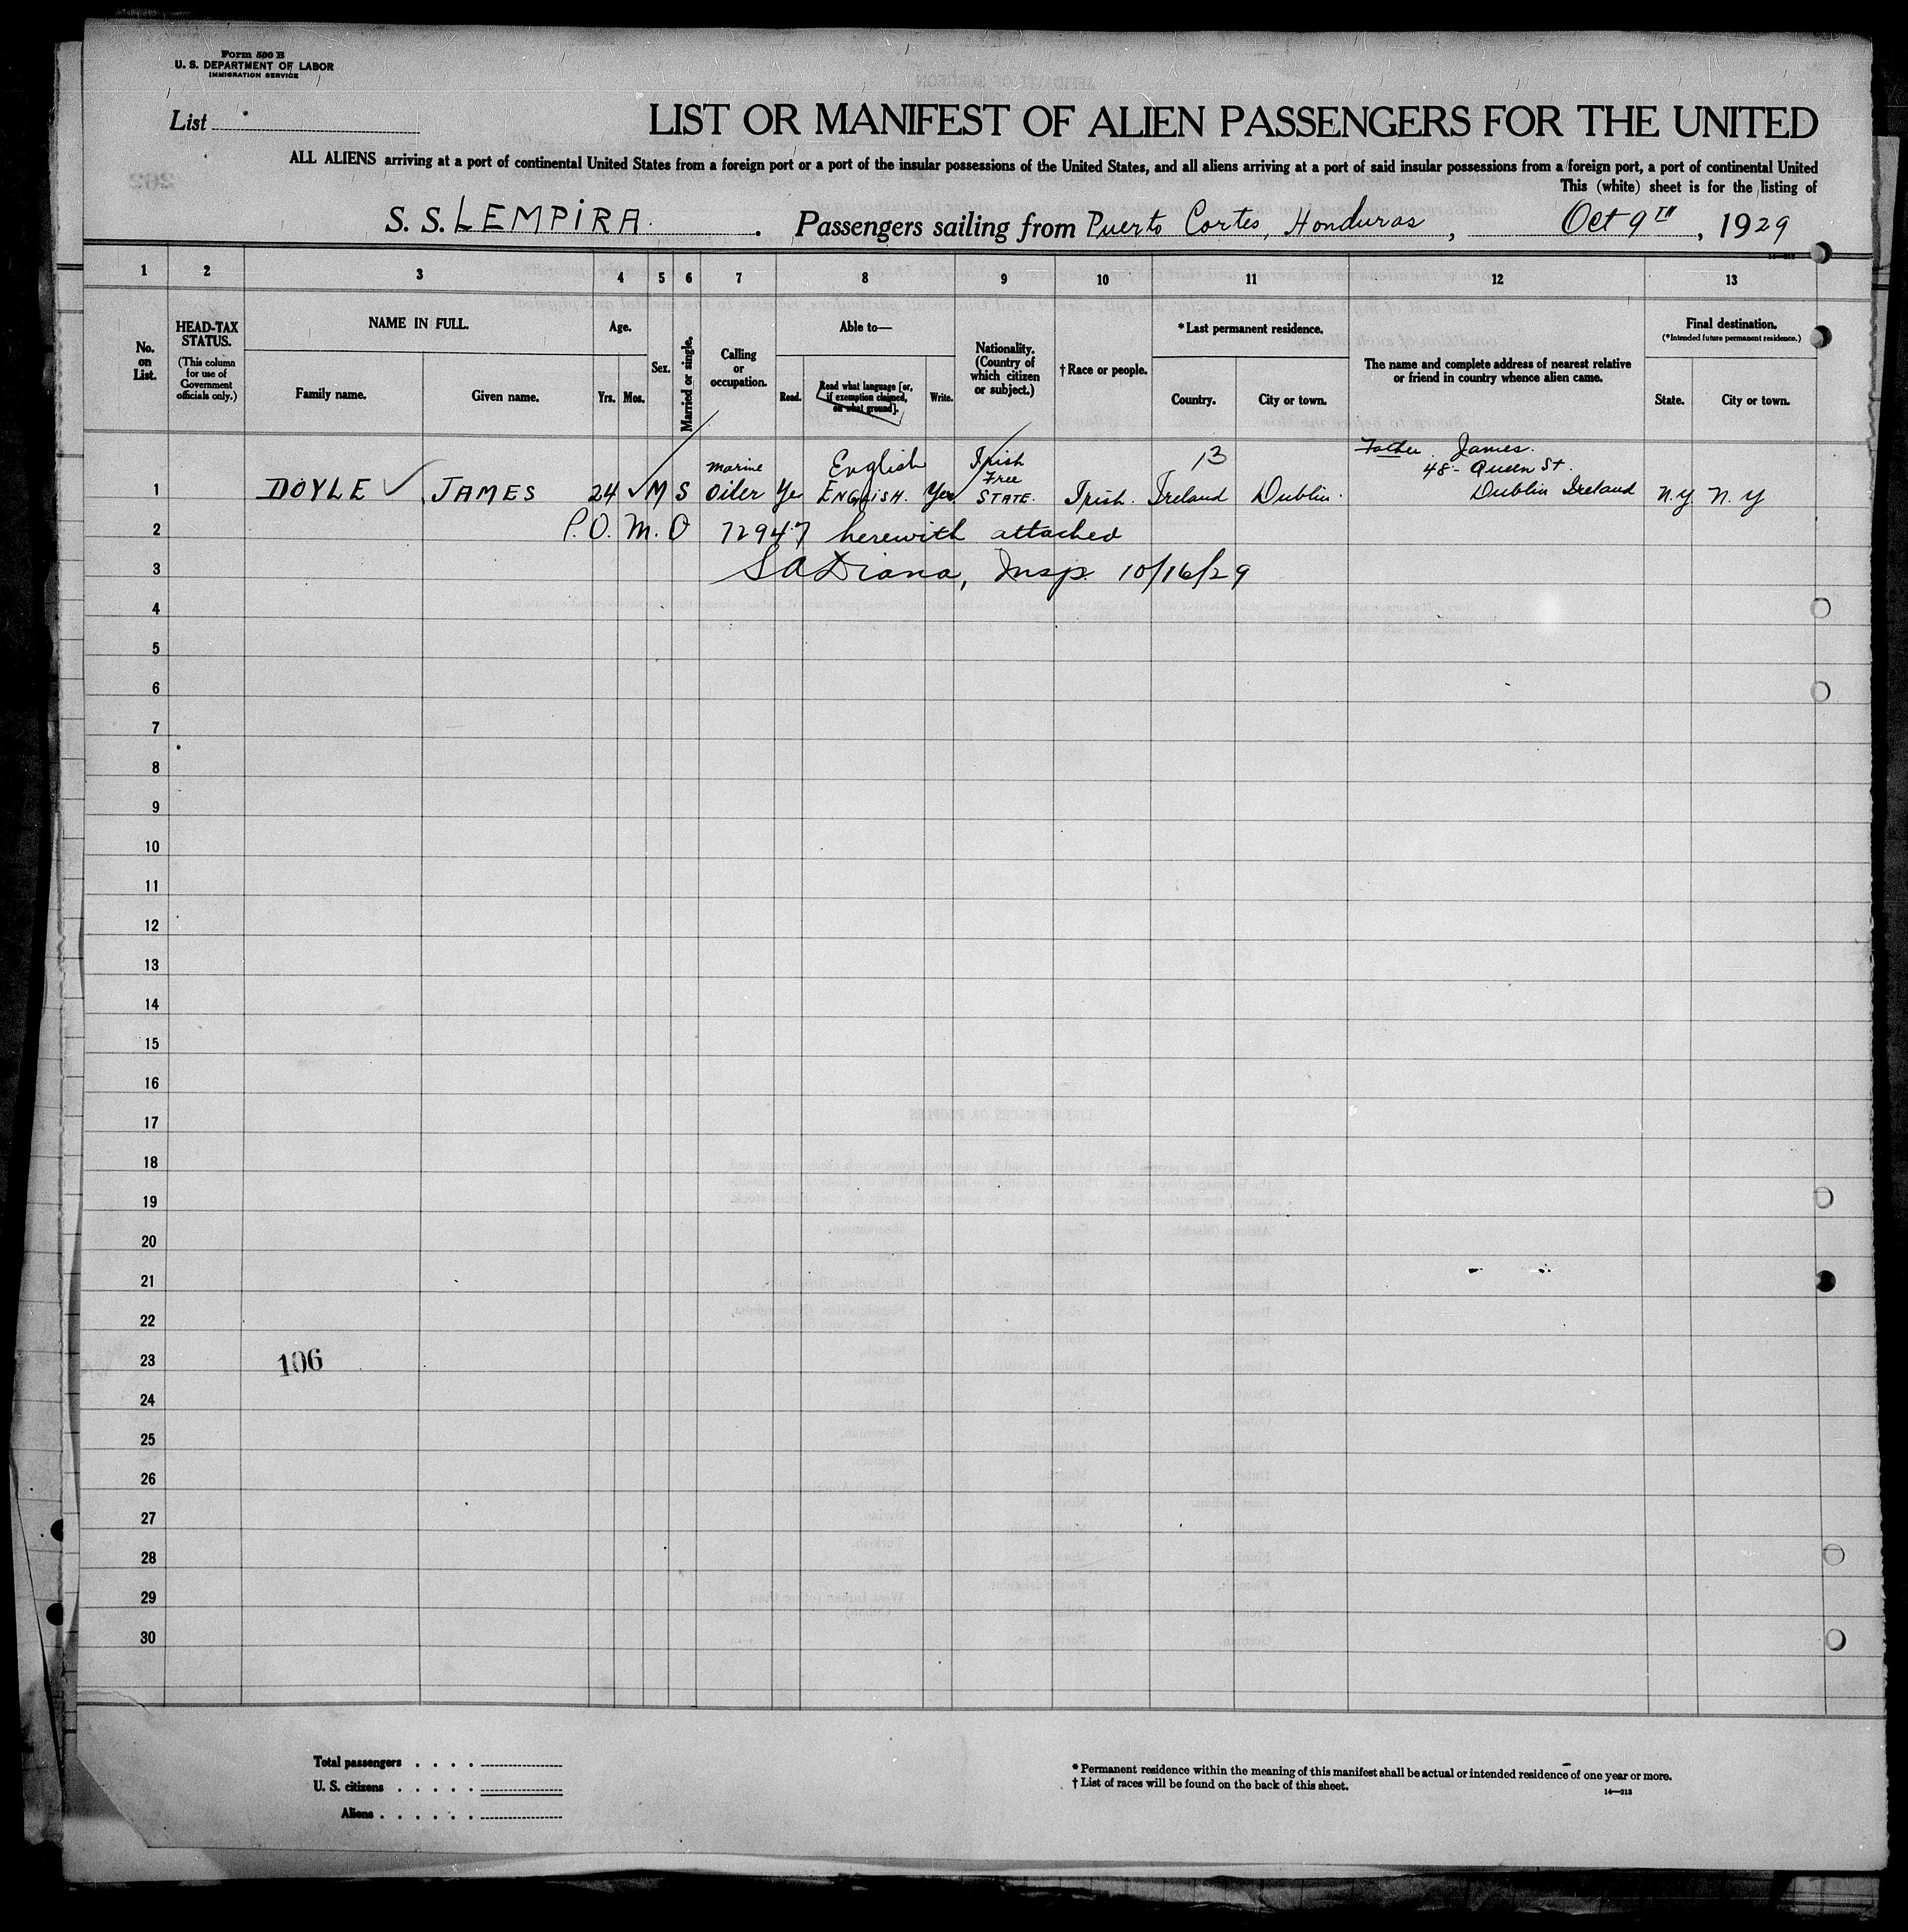 Form 500 B
U. S. DEPARTMENT OF LABOR
IMMIGRATION SERVICE
List
LIST OR MANIFEST OF ALIEN PASSENGERS FOR THE UNITED
ALL ALIENS arriving at a port of continental United States from a foreign port or a port of the insular possessions of the United States, and all aliens arriving at a port of said insular possessions from a foreign port, a port of continental United
This (white) sheet is for the listing of
262
S. S. LEMPIRA. Passengers sailing from Puerto Cortes, Honduras, Oct 9TH, 1929
1 2 3 4 5 6 7 8 9 10 11 12 13
No. on List.
HEAD-TAX STATUS.
(This column for use of Government officials only.)
NAME IN FULL.
Family name.
Given name.
Age.
Yrs. Mos.
Sex.
Married or single.
Calling or occupation.
Able to—
Read.
Read what language [or, if exemption claimed, on what ground].
Write.
Nationality. (Country of which citizen or subject.)
† Race or people.
* Last permanent residence.
Country.
City or town.
The name and complete address of nearest relative or friend in country whence alien came.
Final destination.
(* Intended future permanent residence.)
State.
City or town.
13
Father. James.
marine English Irish Free 48 - Queen St.
1 DOYLE ✓ JAMES 24 ✓ M S Oiler Yes ENGLISH. Yes STATE. Irish. Ireland Dublin. Dublin Ireland N.Y. N.Y
2 P.O. M. O 72947 herewith attached
3 SADiana, Insp. 10/16/29
4
5
6
7
8
9
10
11
12
13
14
15
16
17
18
19
20
21
22
23 106
24
25
26
27
28
29
30
Total passengers . . . .
U. S. citizens . . . . .
Aliens . . . . . .
* Permanent residence within the meaning of this manifest shall be actual or intended residence of one year or more.
† List of races will be found on the back of this sheet.
14—213